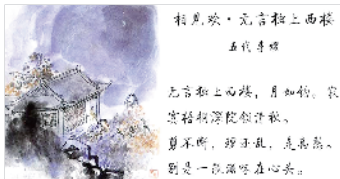 相见欢·无言独上西楼
五代李煜
无言独上西楼，月如钩。寂
寞梧桐深院锁清秋。
剪不断，理还乱，是离愁。
别是一般滋味在心头。